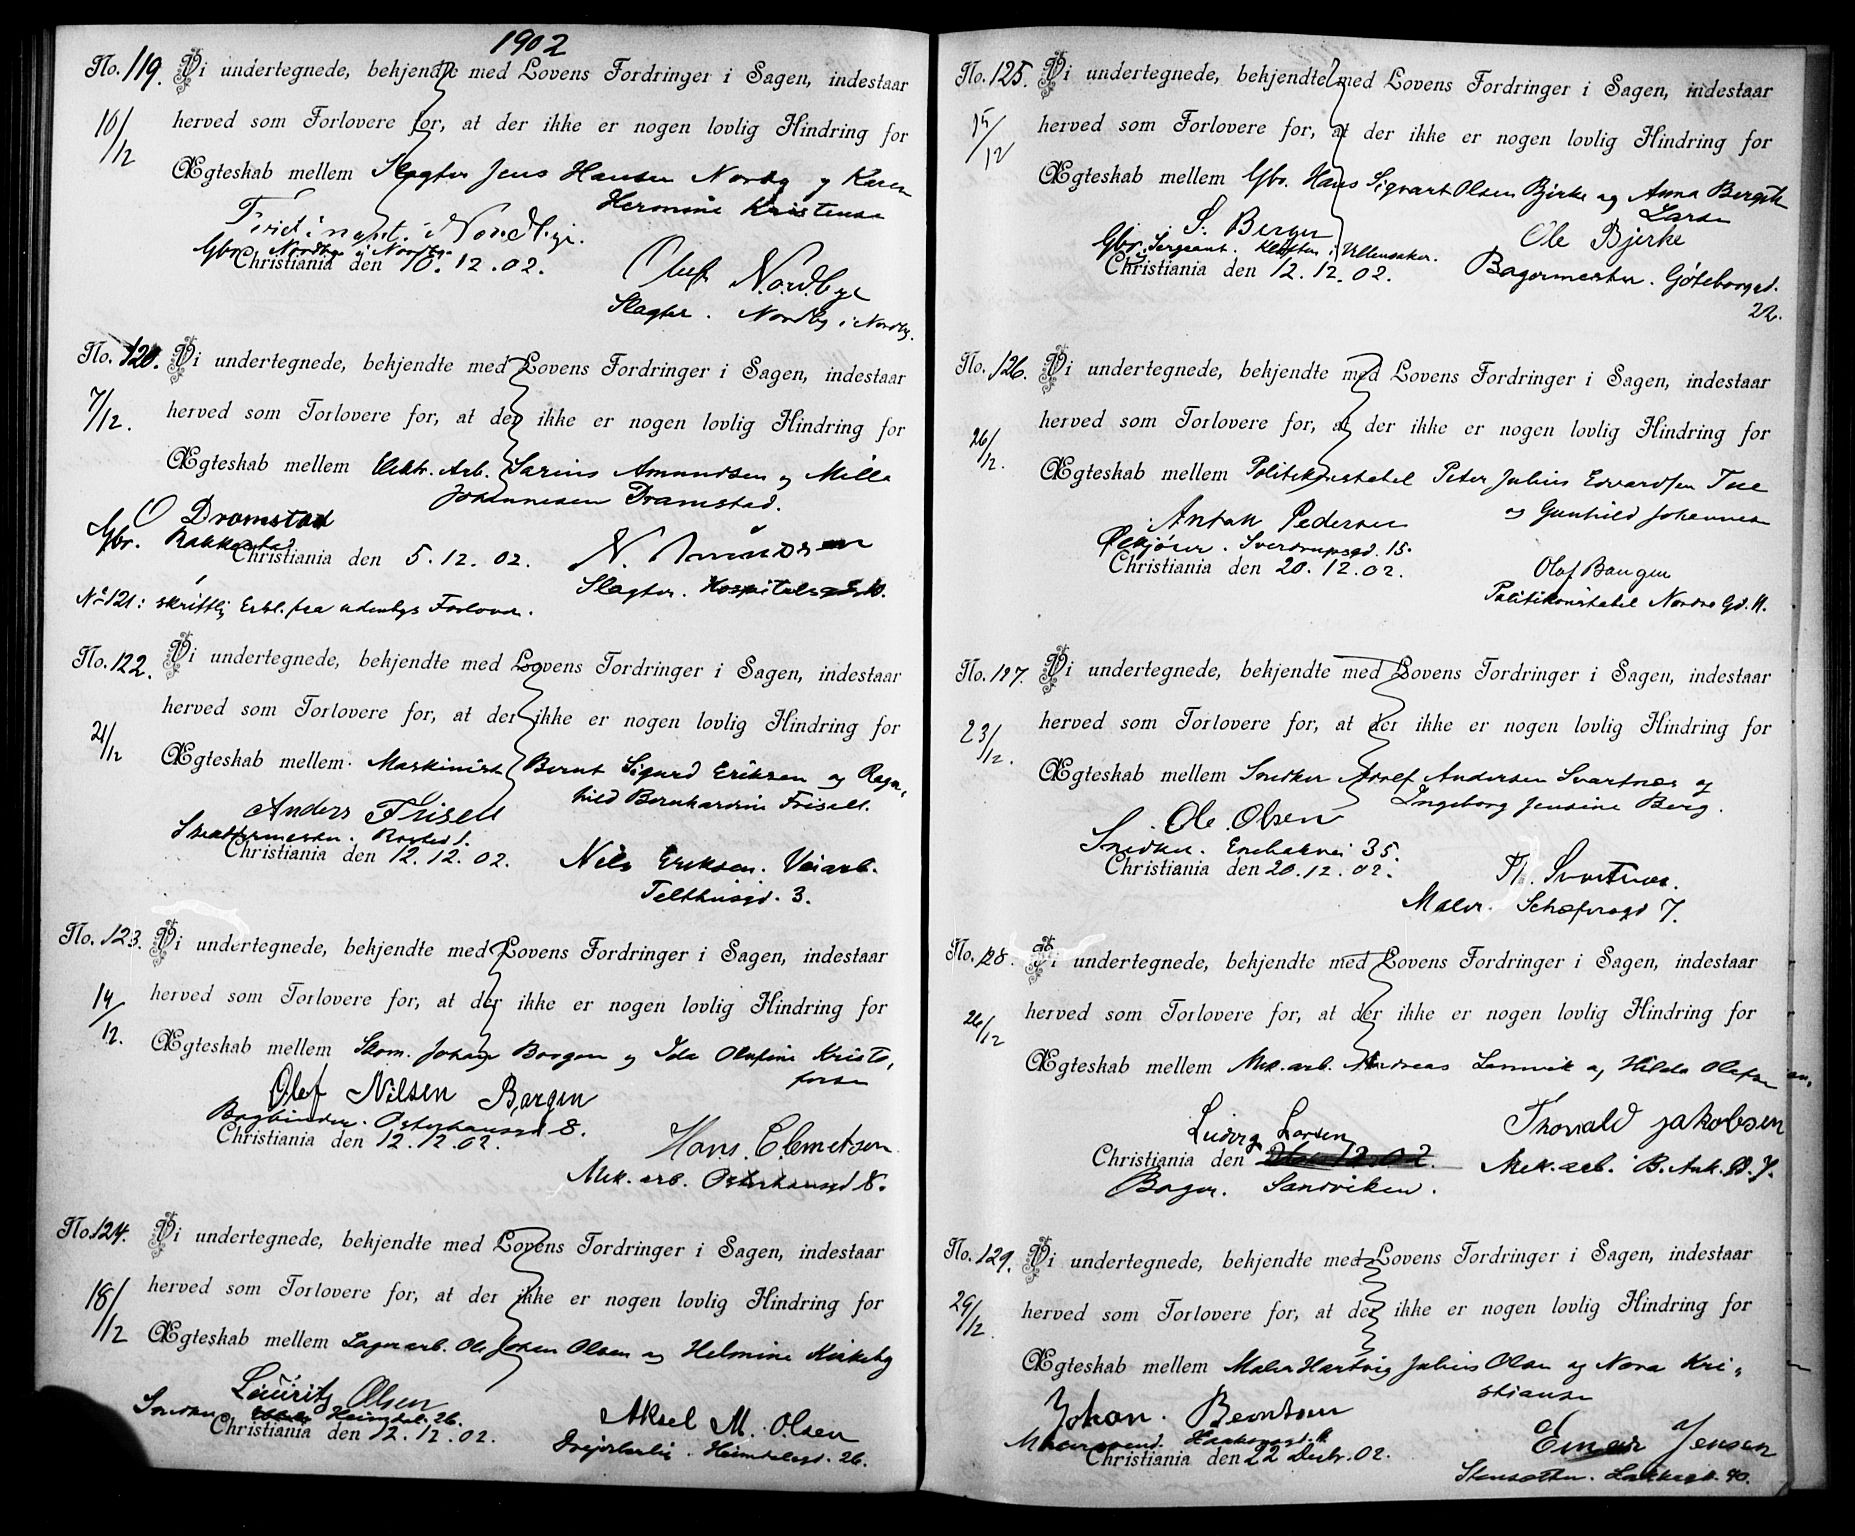 1902
No. 119. Vi undertegnede, bekjendte med Lovens Fordringer i Sagen, indestaar
10/12 herved som Forlovere for, at der ikke er nogen lovlig Hindring for
Ægteskab mellem Slagter Jens Hansen Nordby og Karen
Hermine Kristensen
Ferdinant. Nordbye.
Gbr. Nordby i Nordby
Christiania den 10.12.02.
Oluf Nordbye
Slagter. Nordby i Nordby.
No. 120. Vi undertegnede, bekjendte med Lovens Fordringer i Sagen, indestaar
7/12. herved som Forlovere for, at der ikke er nogen lovlig Hindring for
Ægteskab mellem Elektr. Arb. Sarius Amundsen og Milla
Johannesen Dramstad.
O Dramstad
Gbr. Rakkestad
Christiania den 5.12.02.
N. Amundsen
Slagter. Hospitalsgd. 10.
No 121: skriftlig Erkl. fra udenbys Forlover.
No. 122. Vi undertegnede, bekjendte med Lovens Fordringer i Sagen, indestaar
21/12 herved som Forlovere for, at der ikke er nogen lovlig Hindring for
Ægteskab mellem Maskinist Bernt Sigurd Eriksen og Ragn-
hild Bernhardine Frisell.
Anders Frisell
Skattermester. Rosted 1.
Christiania den 12.12.02.
Nils Eriksen. Veiarb.
Telthusgd. 3.
No. 123. Vi undertegnede, bekjendte med Lovens Fordringer i Sagen, indestaar
14/12. herved som Forlovere for, at der ikke er nogen lovlig Hindring for
Ægteskab mellem Skom. Johan Borgen og Ida Olufine Kristo-
fersen
Olef Nilsen Borgen
Bogbinder. Osterhausgd 8.
Christiania den 12.12.02.
Hans. Clemetsen
Mek. arb. Osterhausgd 8.
No. 124. Vi undertegnede, bekjendte med Lovens Fordringer i Sagen, indestaar
18/12 herved som Forlovere for, at der ikke er nogen lovlig Hindring for
Ægteskab mellem Lagerarb. Ole Johan Olsen og Helmine Kirkeby
Lauritz Olsen
Snedker. Heimdal. 26.
Christiania den 12.12.02.
Aksel M. Olsen
Heimdalsgd. 26.
No. 125. Vi undertegnede, bekjendte med Lovens Fordringer i Sagen, indestaar
15/12 herved som Forlovere for, at der ikke er nogen lovlig Hindring for
Ægteskab mellem Gbr. Hans Sigvart Olsen Bjerke og Anna Bergitte
Larsen
S. Berger
Gbr. Sergeant. Kløften i Ullensaker.
Christiania den 12.12.02.
Ole Bjerke
Bagermester. Göteborggd.
22.
No. 126. Vi undertegnede, bekjendte med Lovens Fordringer i Sagen, indestaar
26/12. herved som Forlovere for, at der ikke er nogen lovlig Hindring for
Ægteskab mellem Politikonstabel Peter Julius Edvardsen Tue
og Gunhild Johannesen
Anton Pedersen
Ølkjører. Sverdrupsgd. 15.
Christiania den 20.12.02.
Olaf Bangen
Politikonstabel Nordre Gd. 11.
No. 127. Vi undertegnede, bekjendte med Lovens Fordringer i Sagen, indestaar
23/12. herved som Forlovere for, at der ikke er nogen lovlig Hindring for
Ægteskab mellem Snedker Adolf Andersen Svartnæs og
Ingeborg Jensine Berg.
Ole. Olsen
Snedker. Enebakvei 35.
Christiania den 20.12.02.
Th. Svartnæs.
Maler. Schæfersgd 7.
No. 128. Vi undertegnede, bekjendte med Lovens Fordringer i Sagen, indestaar
26/12 herved som Forlovere for, at der ikke er nogen lovlig Hindring for
Ægteskab mellem Mek. arb. Andreas Lannvik og Hilda Olafsen
Ludvig Larsen
Christiania den 12.02.
Bager. Sandviken.
Thorvald Jakobsen
Mek. arb. B. Ank. gd. 7.
No. 129. Vi undertegnede, bekjendte med Lovens Fordringer i Sagen, indestaar
29/12. herved som Forlovere for, at der ikke er nogen lovlig Hindring for
Ægteskab mellem Maler Hartvig Julius Olsen og Nora Kri-
stiansen
Johan. Berntsen
Malersvend.
Christiania den 22 Decbr. 02.
Einar Jensen
Stensætter. Lakkegd. 40.